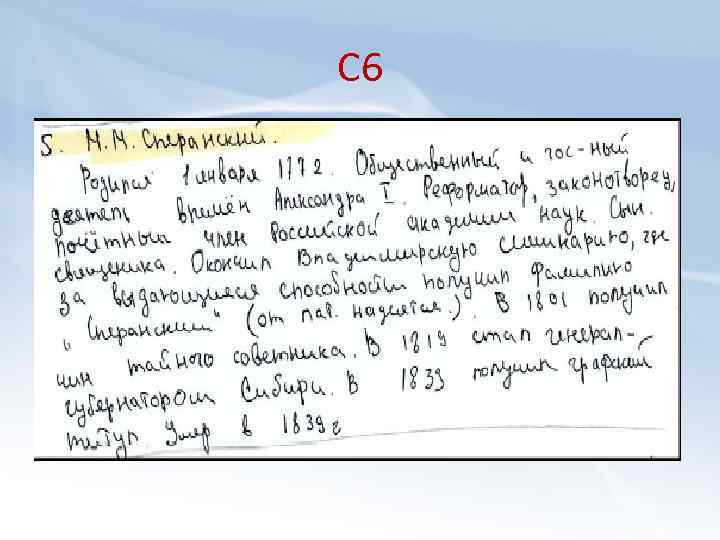 С 6
5. М.М. Сперанский.
Родился 1 января 1772. Общественный и гос-ный
деятель времён Александра I. Реформатор, законотворец,
почётный член Российской академии наук. Сын
священика. Окончил Владимирскую семинарию, где
за выдающиеся способности получил фамилию
"Сперанский" (от лат. надеятся.). В 1801 получил
чин тайного советника. В 1819 стал генерал-
губернатором Сибири. В 1839 получил графский
титул. Умер в 1839 г